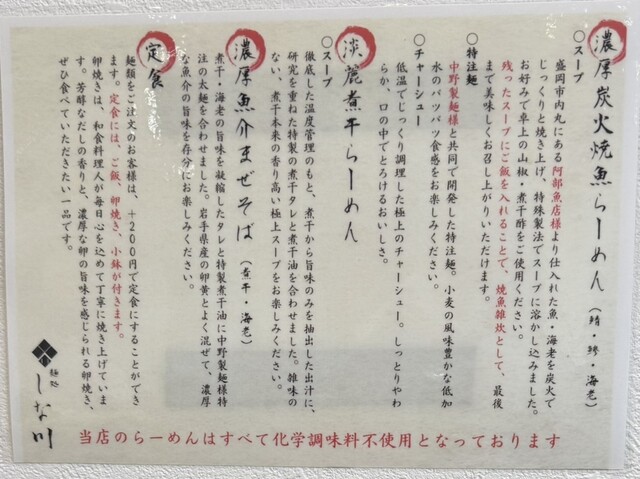 濃厚炭火焼魚らーめん（鯖・鯵・海老）
○スープ
盛岡市内丸にある阿部魚店様より仕入れた魚・海老を炭火で
じっくりと焼き上げ、特殊製法でスープに溶かし込みました。
お好みで卓上の山椒・煮干酢をご使用ください。
残ったスープにご飯を入れることで、焼魚雑炊として、最後
まで美味しくお召し上がりいただけます。
○特注麺
中野製麺様と共同で開発した特注麺。小麦の風味豊かな低加
水のパツパツ食感をお楽しみください。
○チャーシュー
低温でじっくり調理した極上のチャーシュー。しっとりやわ
らか、口の中でとろけるおいしさ。
淡麗煮干らーめん
○スープ
徹底した温度管理のもと、煮干から旨味のみを抽出した出汁に、
研究を重ねた特製の煮干タレと煮干油を合わせました。雑味の
ない、煮干本来の香り高い極上スープをお楽しみください。
濃厚魚介まぜそば（煮干・海老）
煮干・海老の旨味を凝縮したタレと特製煮干油に中野製麺様特
注の太麺を合わせました。岩手県産の卵黄とよく混ぜて、濃厚
な魚介の旨味を存分にお楽しみください。
定食
麺類をご注文のお客様は、＋200円で定食にすることができ
ます。定食には、ご飯、卵焼き、小鉢が付きます。
卵焼きは、和食料理人が毎日心を込めて丁寧に焼き上げていま
す。芳醇なだしの香りと、濃厚な卵の旨味を感じられる卵焼き、
ぜひ食べていただきたい一品です。
麺処
しな川
当店のらーめんはすべて化学調味料不使用となっております